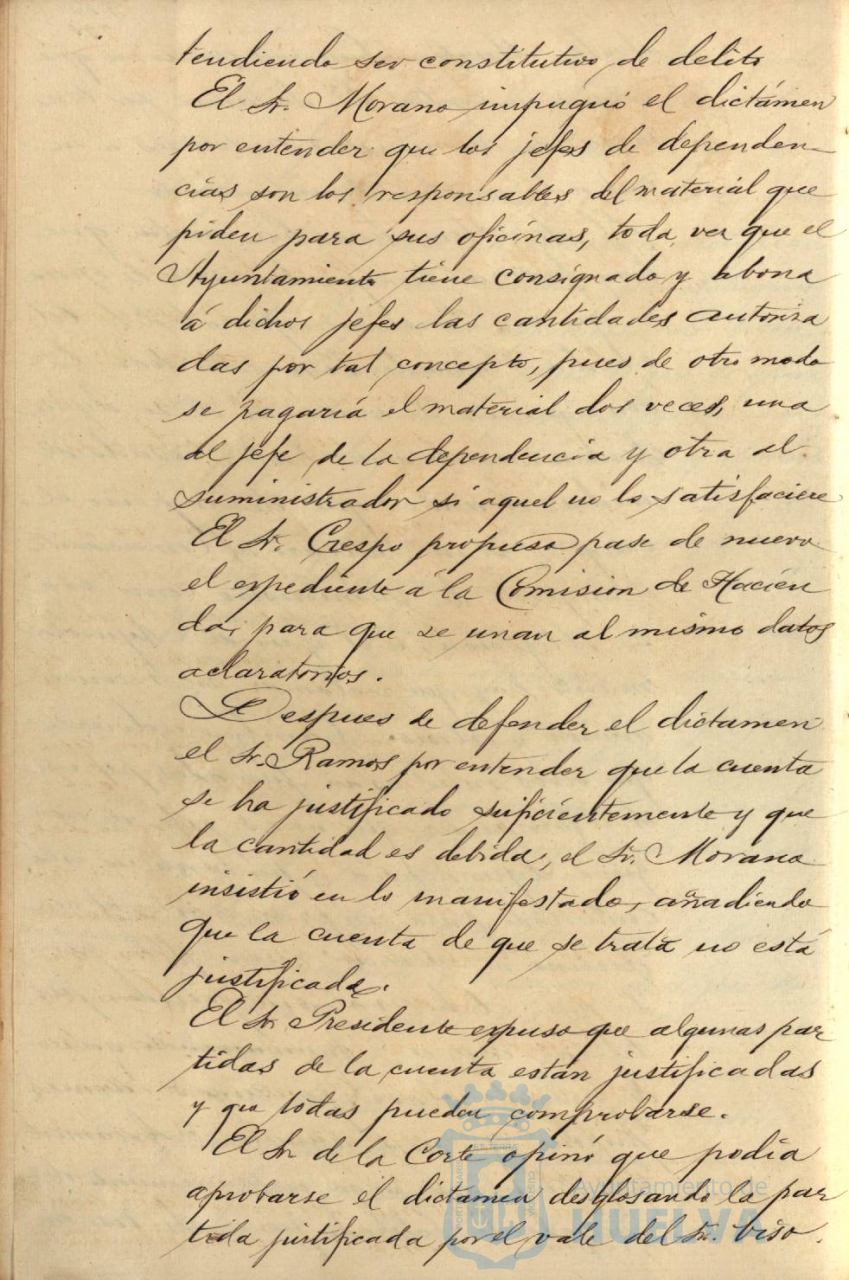 tendiendo ser constitutivo de delito
El Sr. Morano impugnó el dictámen
por entender que los jefes de dependen-
cias son los responsables del material que
piden para sus oficinas, toda vez que el
Ayuntamiento tiene consignado y abona
á dichos jefes las cantidades autoriza
das por tal concepto, pues de otro modo
se pagaría el material dos veces, una
al jefe de la dependencia y otra al
suministrador si aquel no lo satisfaciere
El Sr. Crespo propuso pase de nuevo
el expediente á la Comision de Hacien
da, para que se unan al mismo datos
aclaratorios.
Despues de defender el dictamen
el Sr. Ramos por entender que la cuenta
se ha justificado suficientemente y que
la cantidad es debida, el Sr. Morano
insistió en lo manifestado, añadiendo
que la cuenta de que se trata no está
justificada.
El Sr Presidente expuso que algunas par
tidas de la cuenta estan justificadas
y que todas pueden comprobarse.
El Sr de la Corte opinó que podia
aprobarse el dictamen desglosando la par
tida justificada por el vale del Sr. Viso.
Ayuntamiento de
HUELVA